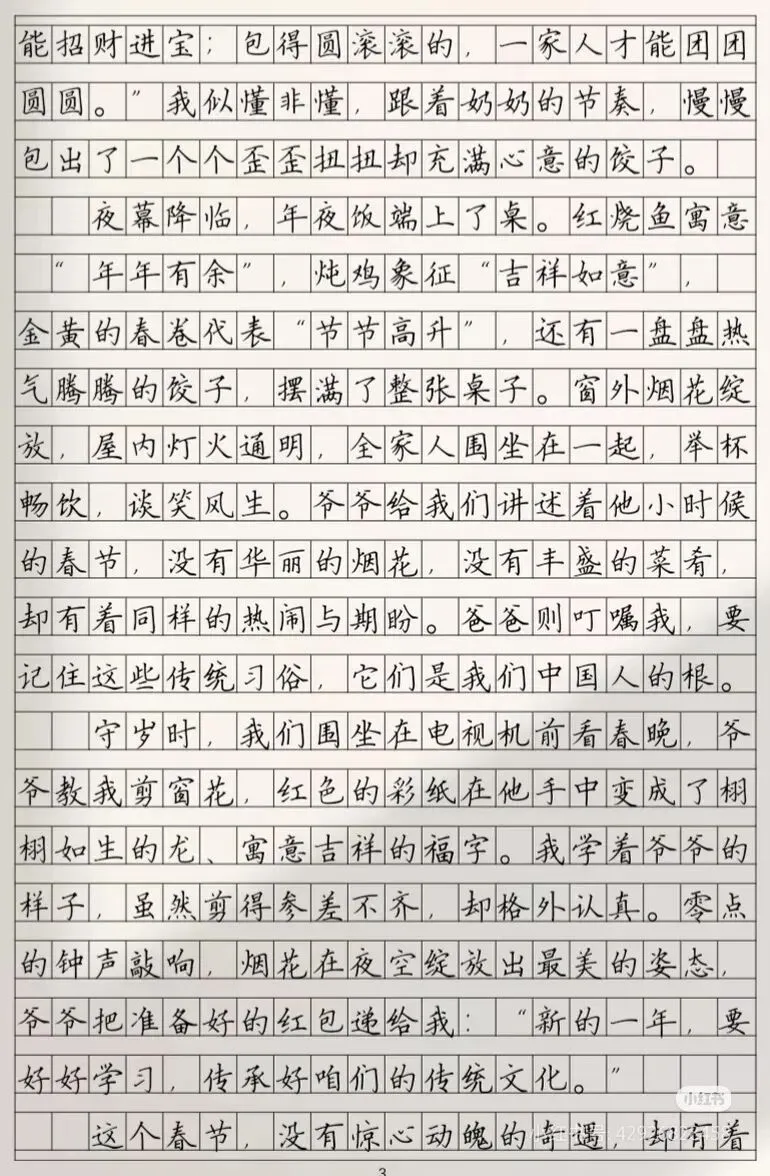 能招财进宝；包得圆滚滚的，一家人才能团团
圆圆。”我似懂非懂，跟着奶奶的节奏，慢慢
包出了一个个歪歪扭扭却充满心意的饺子。
夜幕降临，年夜饭端上了桌。红烧鱼寓意
“年年有余”，炖鸡象征“吉祥如意”，
金黄的春卷代表“节节高升”，还有一盘盘热
气腾腾的饺子，摆满了整张桌子。窗外烟花绽
放，屋内灯火通明，全家人围坐在一起，举杯
畅饮，谈笑风生。爷爷给我们讲述着他小时候
的春节，没有华丽的烟花，没有丰盛的菜肴，
却有着同样的热闹与期盼。爸爸则叮嘱我，要
记住这些传统习俗，它们是我们中国人的根。
守岁时，我们围坐在电视机前看春晚，爷
爷教我剪窗花，红色的彩纸在他手中变成了栩
栩如生的龙、寓意吉祥的福字。我学着爷爷的
样子，虽然剪得参差不齐，却格外认真。零点
的钟声敲响，烟花在夜空绽放出最美的姿态，
爷爷把准备好的红包递给我：“新的一年，要
好好学习，传承好咱们的传统文化。”
小红书
这个春节，没有惊心动魄的奇遇，却有着
3